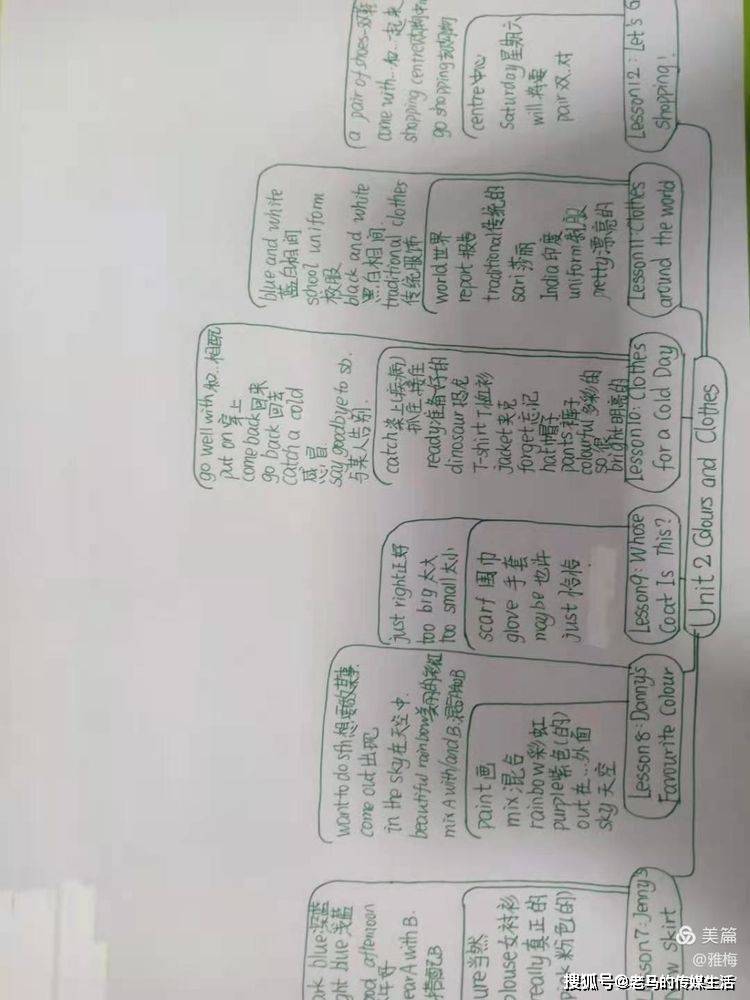 Unit 2 Colours and Clothes
Lesson 7: Jenny's
skirt
ure当然
louse女衬衫
really真正的
粉色(的)
ark blue深蓝
ght blue浅蓝
afternoon
ear A with B.
Lesson 8: Danny's
Favourite Colour
paint画
mix混合
rainbow彩虹
purple紫色(的)
out在…外面
sky天空
want to do sth想要做某事.
come out出现
in the sky在天空中.
beautiful rainbow美丽的彩虹
mix A with/and B混合A和B
Lesson 9: Whose
Coat Is This?
scarf 围巾
glove 手套
maybe 也许
just 恰恰
just right正好
too big 太大
too small太小
Lesson 10: Clothes
for a Cold Day
catch染上(疾病)
抓住.接住
ready准备好的
dinosaur恐龙
T-shirt T恤衫
jacket夹克
forget忘记
hat帽子
pants裤子
colourful多彩的
so 很
bright明亮的
go well with 和…相配
put on 穿上
come back 回来
go back 回去
catch a cold
感冒
say goodbye to sb.
与某人告别.
Lesson 11: Clothes
around the world
world世界
report 报告
traditional传统的
sari莎丽
India印度
uniform制服
pretty漂亮的
blue and white
蓝白相间
school uniform
校服
black and white
黑白相间.
traditional clothes
传统服饰
Lesson 12: Let's G
shopping!
centre中心
Saturday星期六
will 将要
pair双.对
a pair of shoes一双鞋
come with 和…一起来
shopping centre购物中
go shopping去购物
美篇
@雅梅
搜狐号@老马的传媒生活